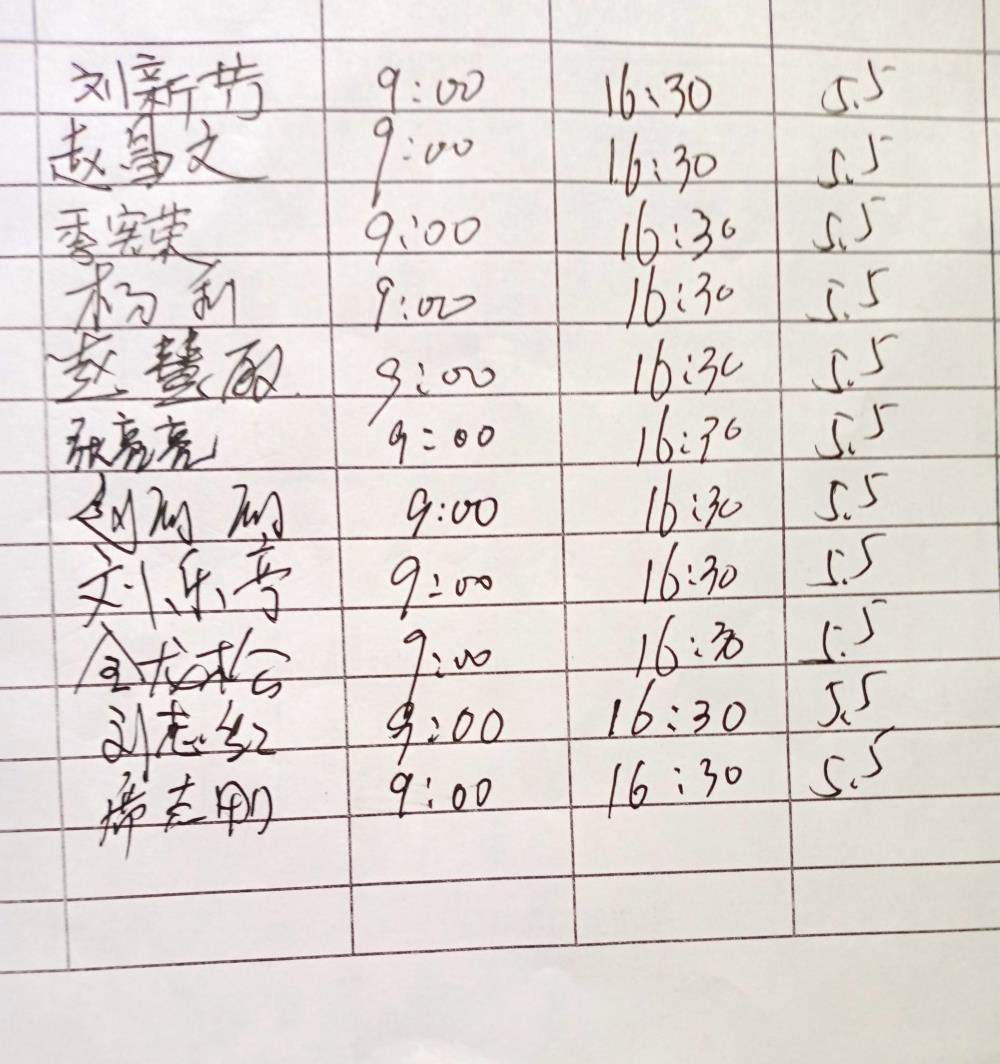 刘新芳 9:00 16:30 5.5
赵昌文 9:00 16:30 5.5
季宪荣 9:00 16:30 5.5
杨利 9:00 16:30 5.5
赵慧敏 9:00 16:30 5.5
张亮亮 9:00 16:30 5.5
赵丽丽 9:00 16:30 5.5
刘乐亭 9:00 16:30 5.5
金龙松 9:00 16:30 5.5
刘志红 9:00 16:30 5.5
席志刚 9:00 16:30 5.5